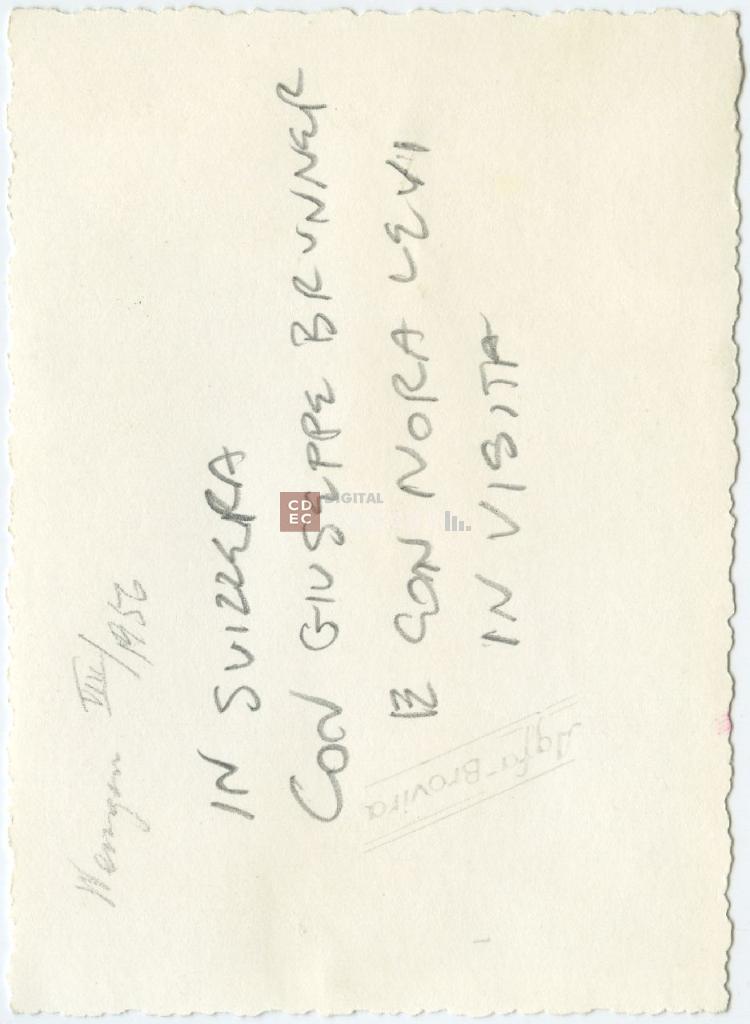 Wengen VIII/1956
IN SVIZZERA
CON GIUSEPPE BRUNNER
E CON NORA LEVI
IN VISITA
Agfa-Brovira
CDEC DIGITAL